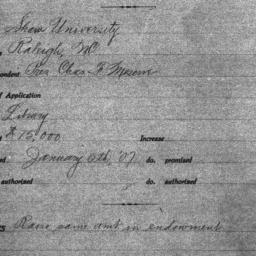 Shaw University
Raleigh, NC
ondent Pres Chas F Meserve
f Application
Library
$15,000 Increase
ed January 6th, '07 do. promised
authorized do. authorized
KS Raise same amt in endowment